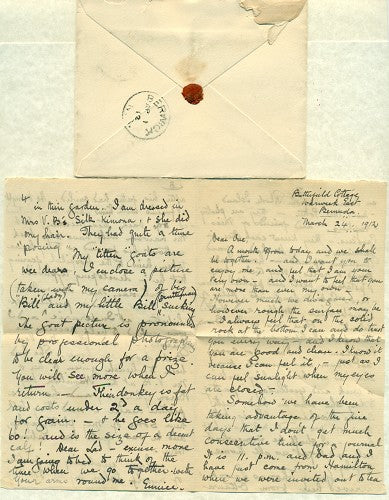 Butterfield Cottage
Warwick East
Bermuda.
March 24, 1912
Dear One,
A month from today and we shall
be together! — and I want you to
enjoy me and feel that I am worth
very much — and I want to feel that you are
now more than ever my comrade.
However much we disagree, or
however rough the surface may be
I always feel that on the solid
rock at the bottom I can and do that
you worry well — and I know that
you are good and clean. I know it
because I can feel it — just as I
can feel sunlight when my eyes
are closed.
Somehow we have been
taking advantage of the fine
days that I don't get much
consecutive time for journal
It is 11 p.m. and Dad and I
have just come from Hamilton
where we were invited out to tea
4
in their garden. I am dressed in
Mrs V. B's Silk Kimona, & she did
my hair. They had quite a time
posing
My kitten goats are
wee dears. I enclose a picture
(taken with my camera) of big
Bill and my little Bill
The goat picture is pronounced
by professional photographers
to be clear enough for a prize
You will see more when I
return — The donkey is fat
and costs under 2d a day
for grain — & he goes like
60! and is the size of a decent
calf! Dear Lad — excuse more
I am going to bed to think of the
time when we go together with
your arms round me. Eunice.